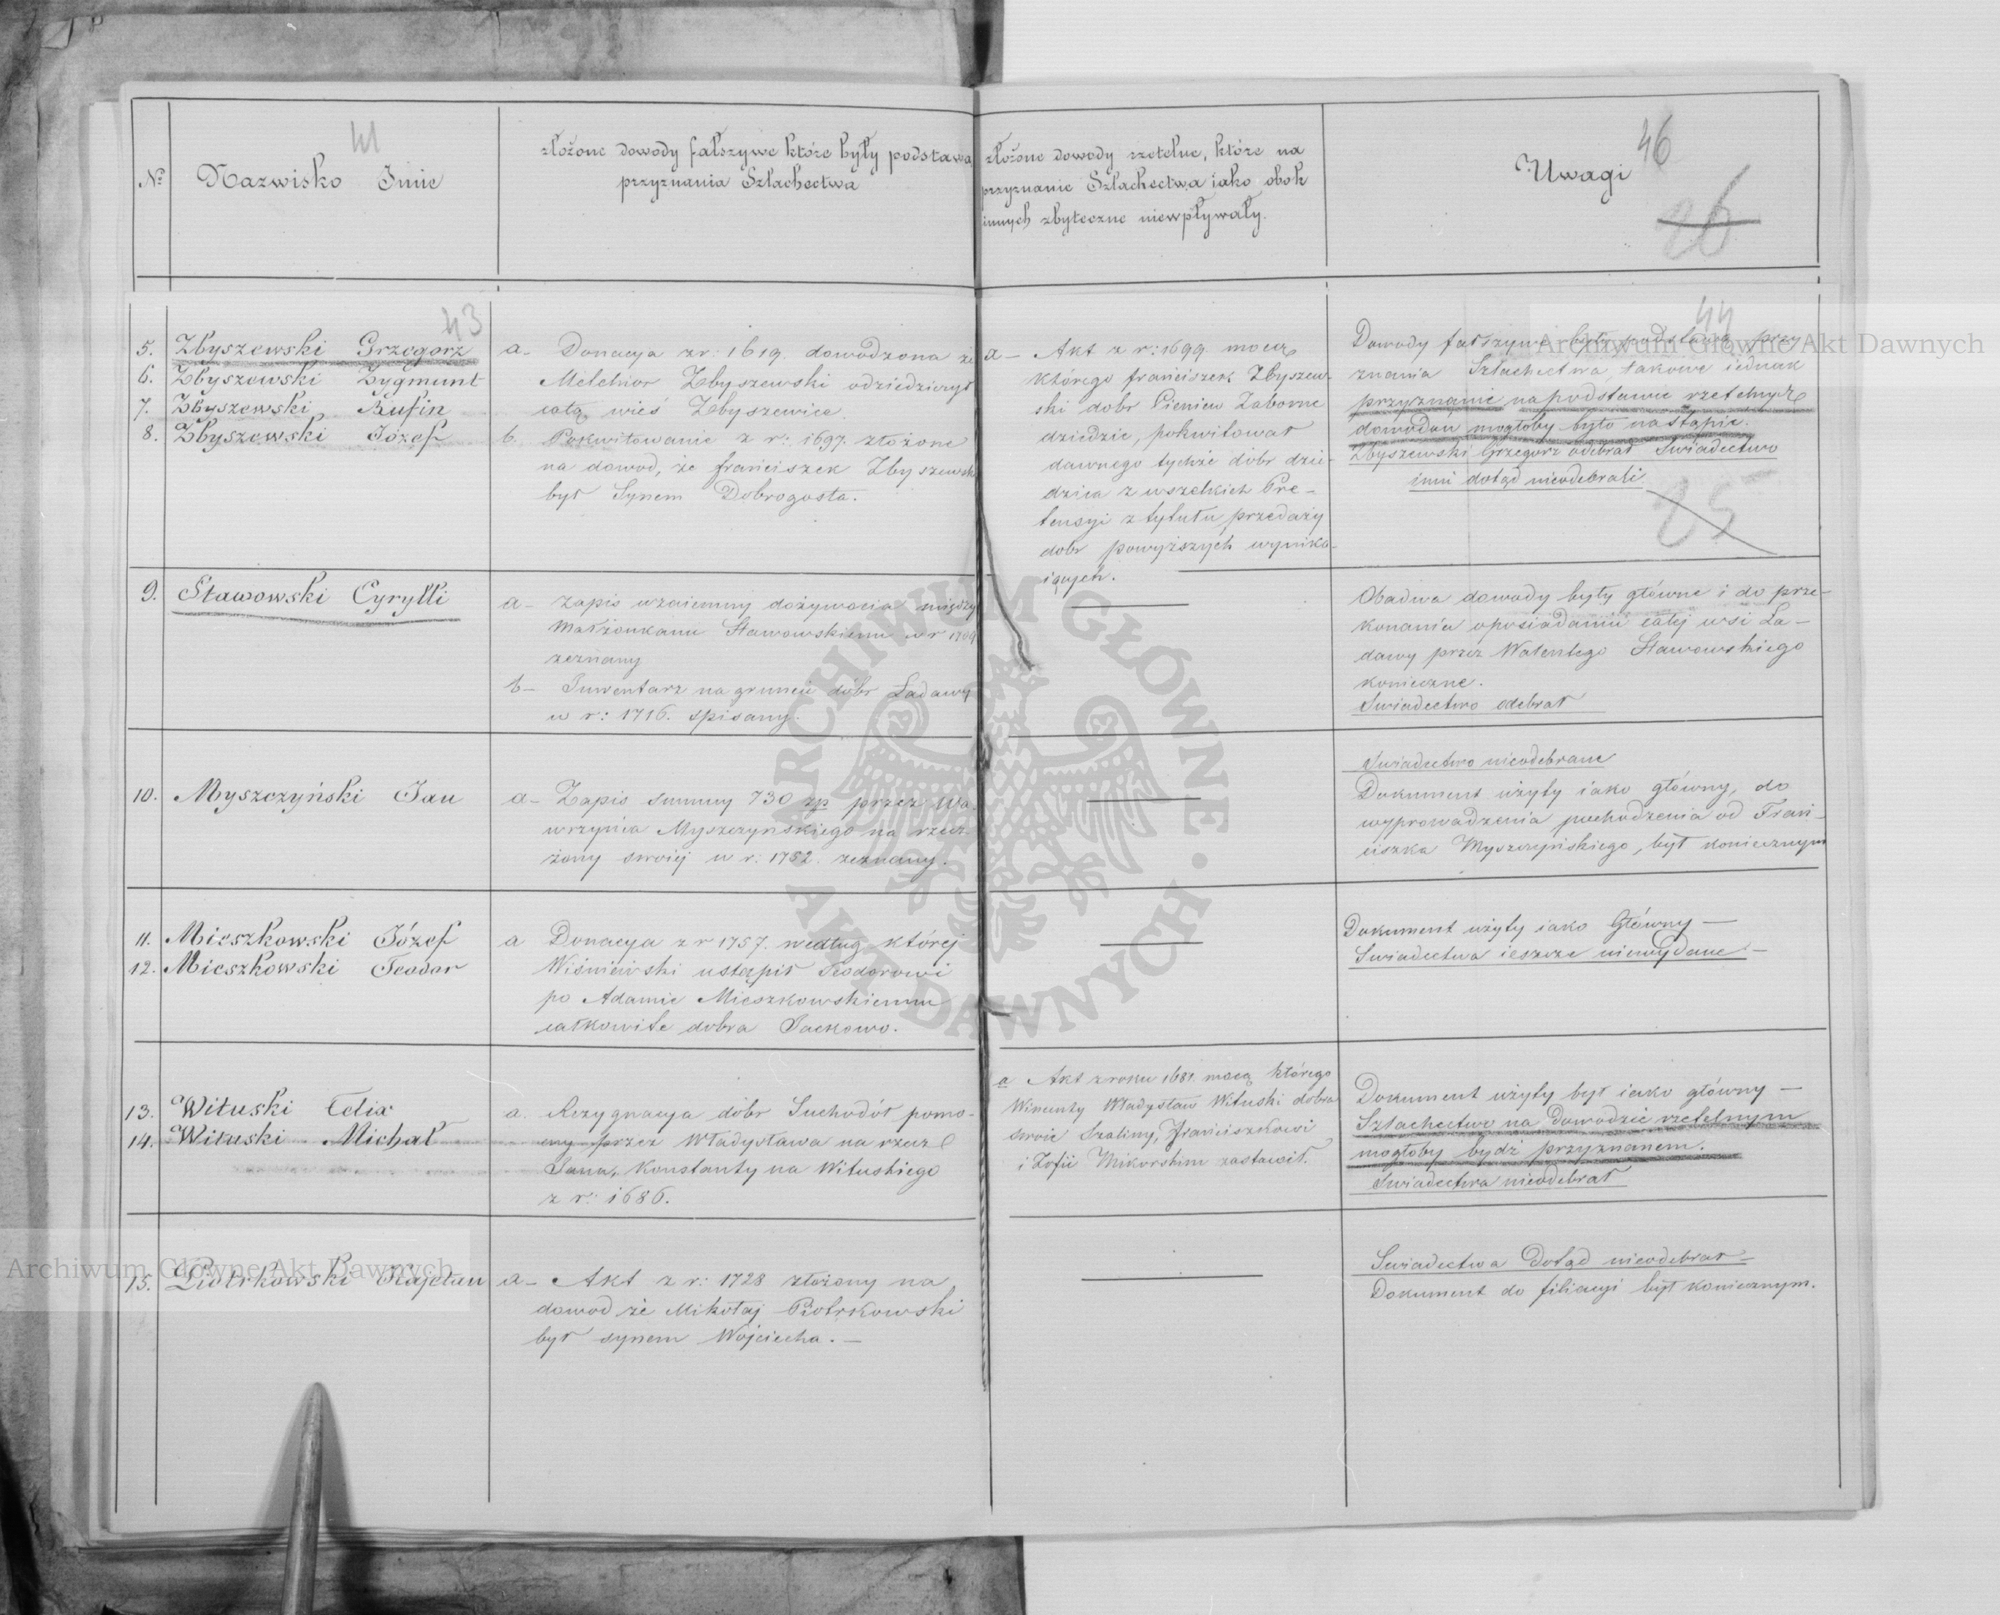 41
46
26
№ Nazwisko Imie
złożone dowody fałszywe które były podstawą
przyznania Szlachectwa
złożone dowody rzetelne, które na
przyznanie Szlachectwa iako obok
innych zbyteczne niewpływały.
Uwagi
43
44
5. Zbyszewski Grzegorz
6. Zbyszewski Zygmunt
7. Zbyszewski Rufin
8. Zbyszewski Józef
a - Donacya z r: 1619. dowodzona że
Melchior Zbyszewski odziedziczył
całą wieś Zbyszewice.
b. Pokwitowanie z r: 1697. złożone
na dowod, że franciszek Zbyszewski
był Synem Dobrogosta.
a - Akt z r: 1699 mocą
którego franciszek Zbyszew-
ski dobr Pieniew Zaborne
dziedzic, pokwitował
dawnego tychże dóbr dzie-
dzica z wszelkich Pre-
tensyi z tytułu przedaży
dobr powyższych wynika-
iących.
Dowody fałszywe były podstawą przy-
znania Szlachectwa, takowe iednak
przyznanie na podstawie rzetelnych
dowodów mogłoby było nastąpić.
Zbyszewski Grzegorz odebrał Swiadectwo
inni dotąd nieodebrali
25
9. Stawowski Cyrylli
a - Zapis wzaiemny dożywocia między
Małżonkami Stawowskiemi w r 1709
zeznany
b - Inwentarz na gruncie dóbr Ladawy
w r: 1716. spisany.
Obadwa dowody były główne i do prze-
konania o posiadaniu całej wsi La-
dawy przez Walentego Stawowskiego
konieczne.
Swiadectwo odebrał
10. Myszczyński Jan
a - Zapis summy 730 zp przez Wa-
wrzyńca Myszczyńskiego na rzecz
żony swoiéj w r: 1752. zeznany.
Swiadectwo nieodebrane
Dokument użyty iako główny, do
wyprowadzenia pochodzenia od Fran-
ciszka Myszczyńskiego, był koniecznym
11. Mieszkowski Józef
12. Mieszkowski Teodor
a Donacya z r 1757. według której
Wiśniewski ustąpił Teodorowi
po Adamie Mieszkowskiemu
całkowite dobra Jackowo.
Dokument użyty iako Główny -
Swiadectwa ieszcze niewydane -
13. Wituski Felix
14. Wituski Michał
a. Rezygnacya dóbr Suchodół pomo-
cny przez Władysława na rzecz
Jana, Konstanty na Wituskiego
z r: 1686.
a Akt z roku 1681. mocą którego
Wincenty Władysław Wituski dobra
swoie Szaliny, Franciszkowi
i Zofii Mikorskim zastawił.
Dokument użyty był iako główny -
Szlachectwo na Dowodzie rzetelnym
mogłoby bydź przyznanem.
Swiadectwa nieodebrał
15. Piotrkowski Kajetan
a - Akt z r: 1728 złożony na
dowod że Mikołaj Piotrkowski
był synem Wojciecha. -
Swiadectwa Dotąd nieodebrał -
Dokument do filiacyi był koniecznym.
Archiwum Główne Akt Dawnych
Archiwum Główne Akt Dawnych
ARCHIWUM GŁÓWNE · AKT DAWNYCH ·